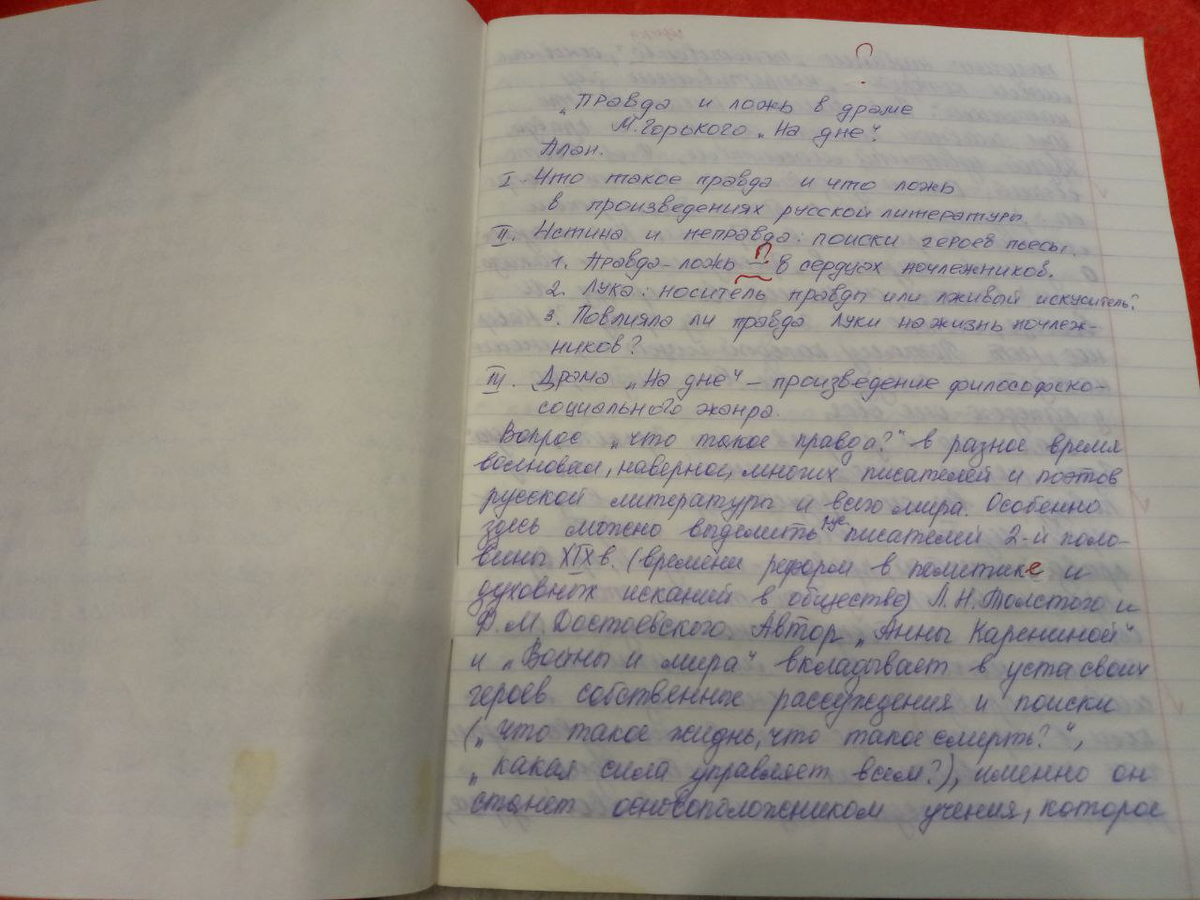 „Правда и ложь в драме
М. Горького „На дне“.
План.
I. Что такое правда и что ложь
в произведениях русской литературы.
II. Истина и неправда: поиски героев пьесы.
1. Правда-ложь – в сердцах ночлежников.
2. Лука: носитель правды или лживый искуситель?
3. Повлияла ли правда Луки на жизнь ночлеж-
ников?
III. Драма „На дне“ – произведение философско-
социального жанра.
Вопрос „что такое правда?“ в разное время
волновал, наверное, многих писателей и поэтов
русской литературы и всего мира. Особенно
здесь можно выделить рус. писателей 2-й поло-
вины XIX в. (времени реформ в политике и
духовных исканий в обществе) Л.Н. Толстого и
Ф.М. Достоевского. Автор „Анны Карениной“
и „Войны и мира“ вкладывает в уста своих
героев собственные рассуждения и поиски
(„что такое жизнь, что такое смерть?“,
„какая сила управляет всем?), именно он
станет основоположником учения, которое